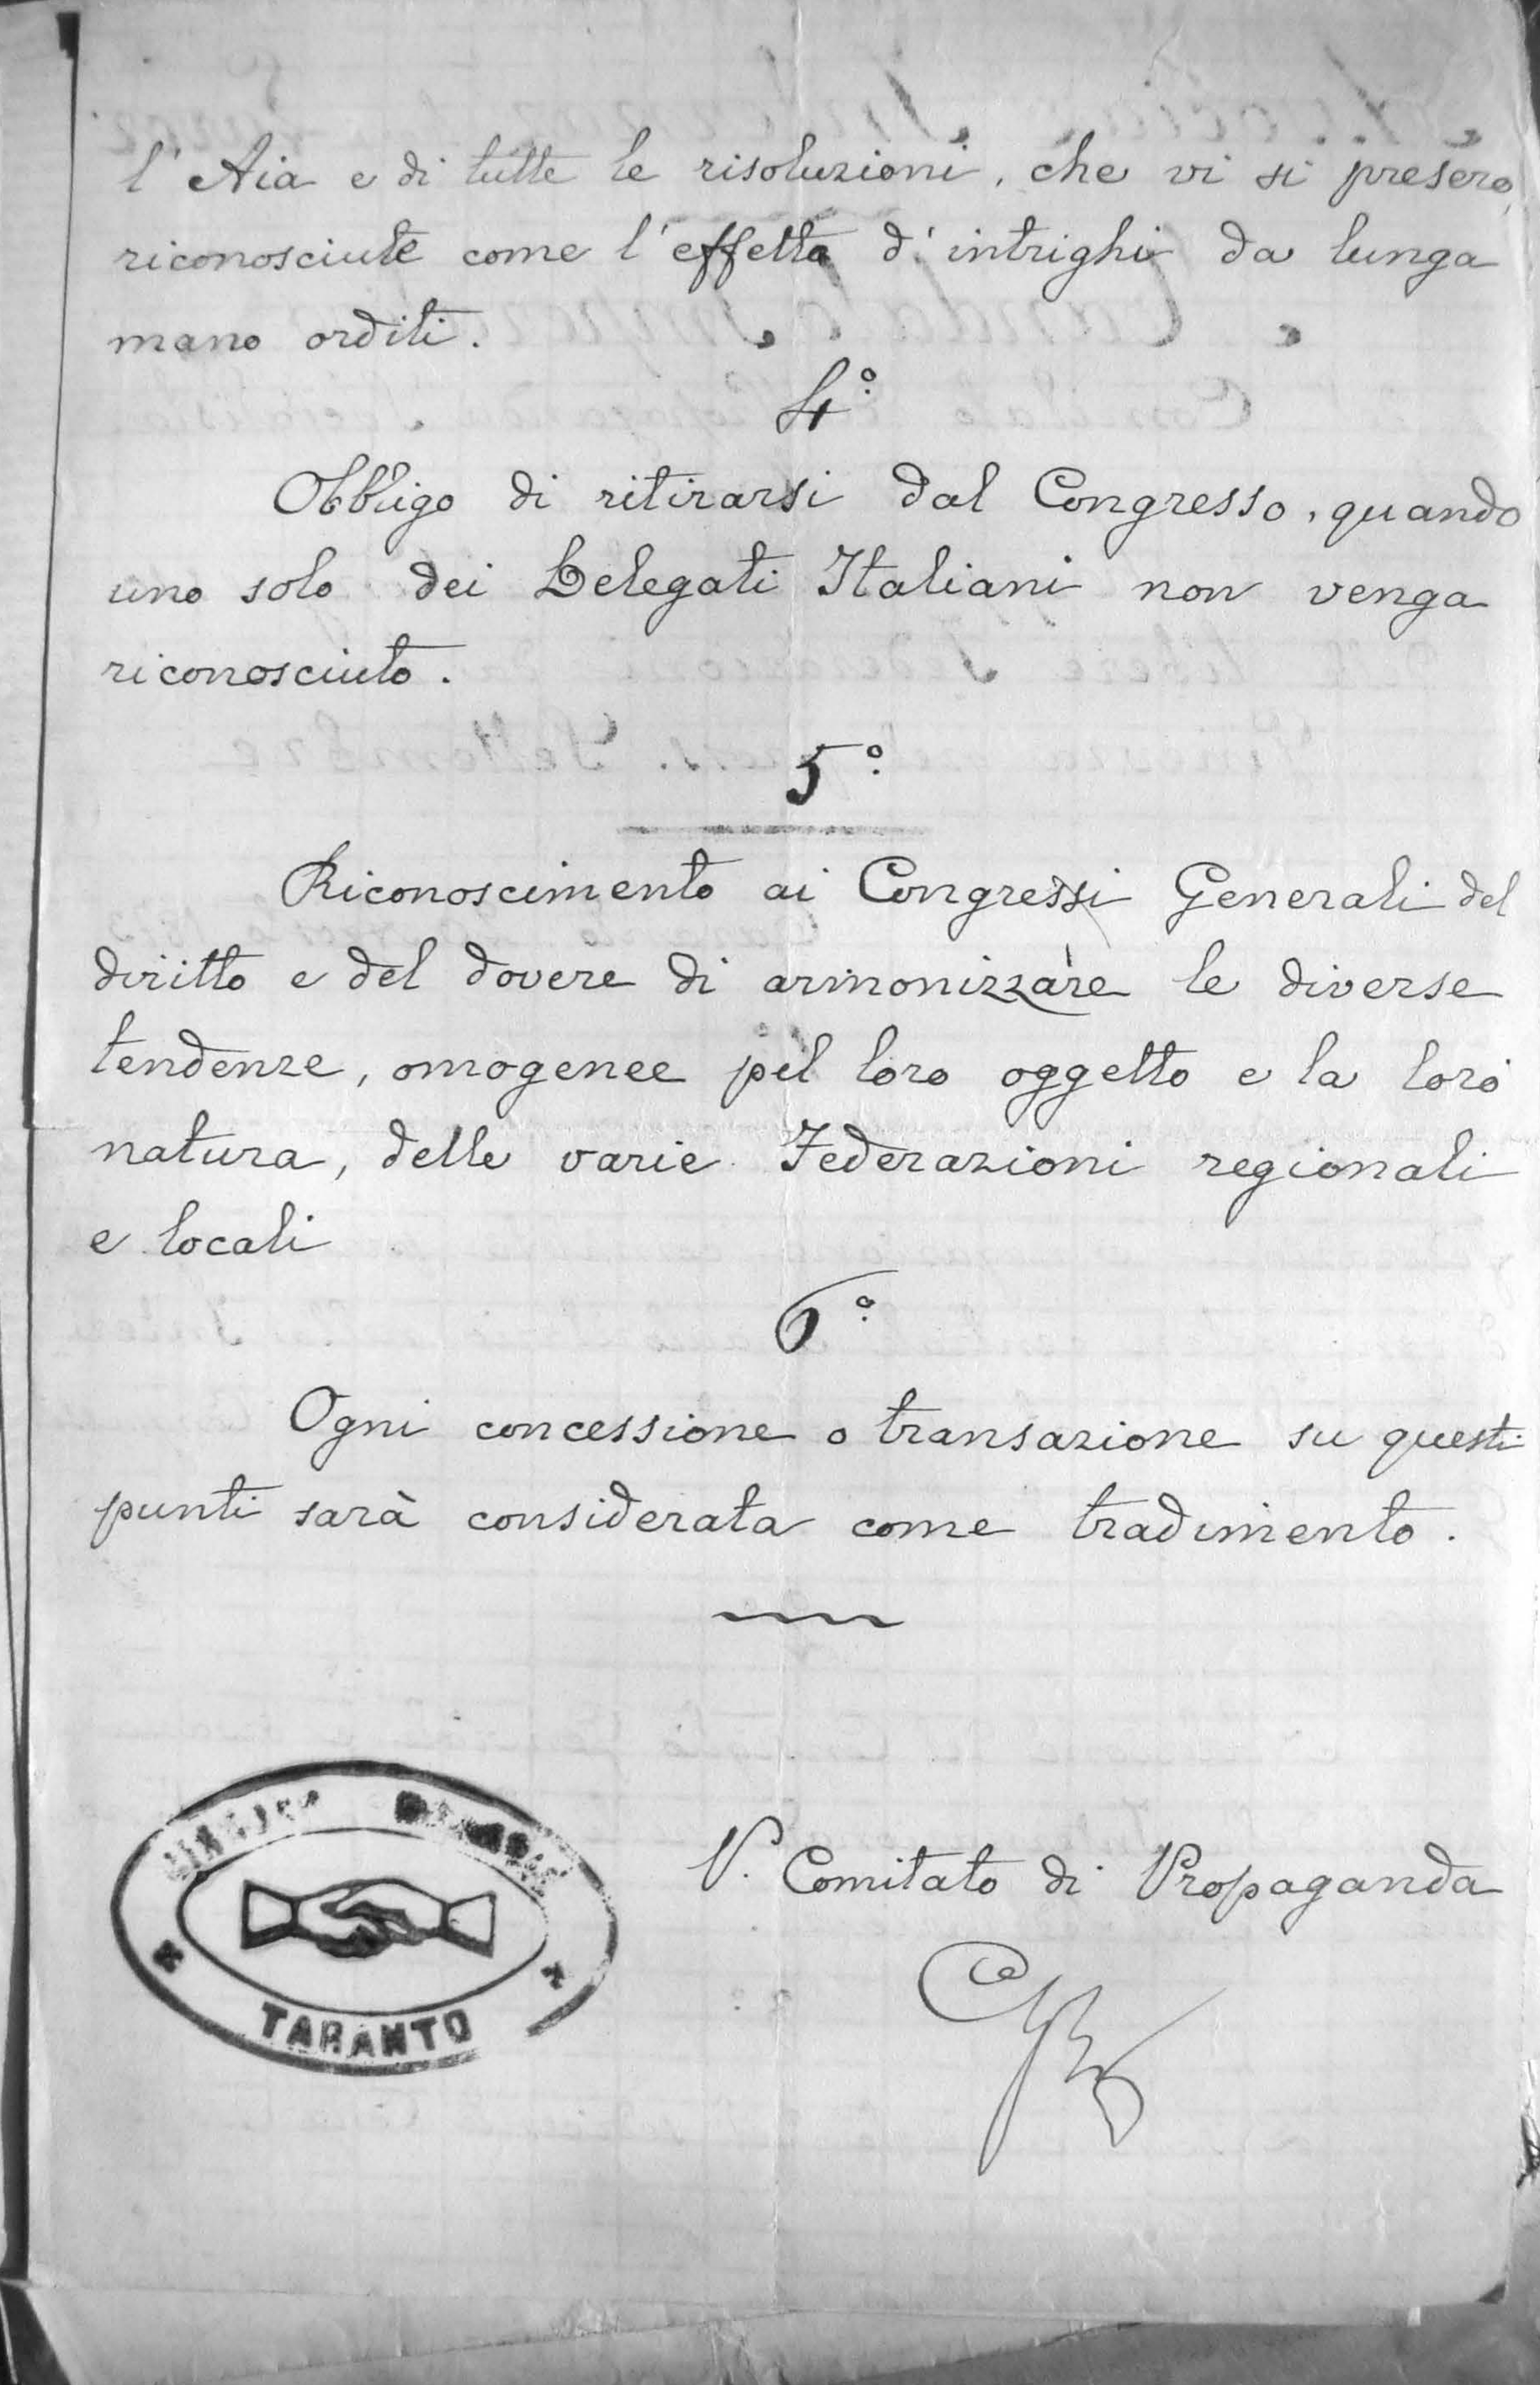 l'Aia e di tutte le risoluzioni, che vi si presero,
riconosciute come l'effetto d'intrighi da lunga
mano orditi.
4°
Obbligo di ritirarsi dal Congresso, quando
uno solo dei Delegati Italiani non venga
riconosciuto.
5°
Riconoscimento ai Congressi Generali del
diritto e del dovere di armonizzare le diverse
tendenze, omogenee pel loro oggetto e la loro
natura, delle varie Federazioni regionali
e locali
6°
Ogni concessione o transazione su questi
punti sarà considerata come tradimento.
Comitato di Propaganda
TARANTO